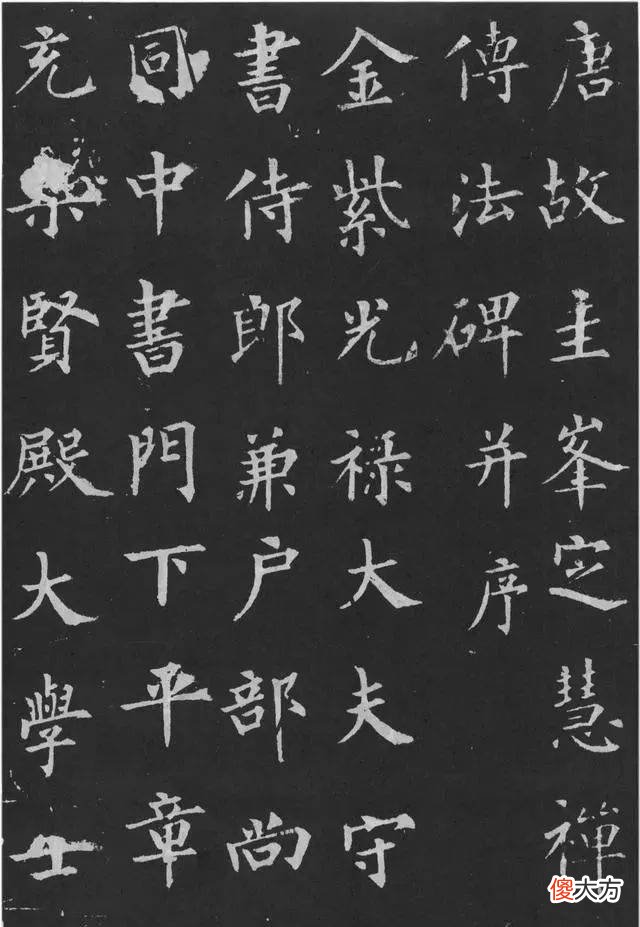 唐故圭峯定慧禪
傳法碑并序
金紫光禄大夫守
書侍郎兼户部尚
同中書門下平章
充集賢殿大學士
傻大方